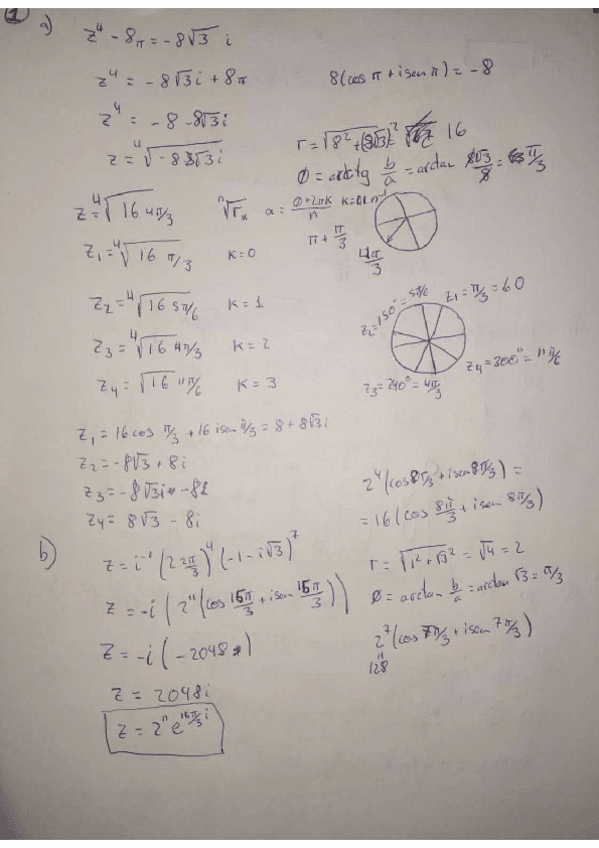 1
a)
z⁴ - 8π = -8√3 i
z⁴ = -8√3i + 8π
8(cos π + isen π) = -8
z⁴ = -8 -8√3i
r = √8² + (8√3)² = 16
φ = arctg b/a = arctan 8√3/8 = π/3
z = ⁴√16 4π/3
ⁿ√r α = φ+2πK/n
π + π/3
4π/3
z₁ = ⁴√16 π/3 K=0
z₂ = ⁴√16 5π/6 K=1
z₃ = ⁴√16 4π/3 K=2
z₄ = √16 11π/6 K=3
z₂=150°=5π/6
z₁=π/3=60
z₄=300°=11π/6
z₃=240°=4π/3
z₁ = 16 cos π/3 + 16 isen π/3 = 8 + 8√3i
z₂ = -8√3 + 8i
z₄ = 8√3 - 8i
2⁴(cos 8π/3 + isen 8π/3) =
= 16(cos 8π/3 + isen 8π/3)
b)
z = i⁻¹ (2 2π/3)⁴ (-1 - i√3)⁷
r = √1² + √3² = √4 = 2
z = -i (2¹¹ (cos 15π/3 + isen 15π/3))
φ = arctan b/a = arctan √3 = π/3
z = -i (-2048)
2⁷(cos 7π/3 + isen 7π/3)
"
128
z = 2048i
z = 2¹¹ e^15π/3 i